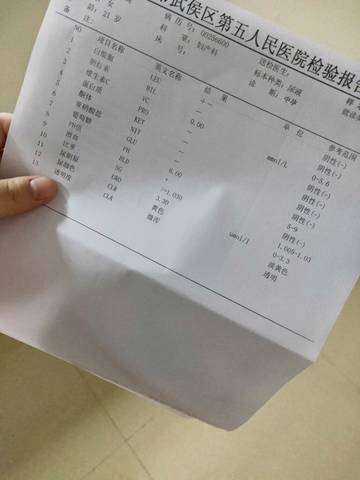 武侯区第五人民医院检验报告
女 病历号: 00256600
龄: 21 岁 科 室: 妇产科 送检医生:
备 注: 床 号: 标本种类: 尿液
诊 断: 中孕
NO 项目名称 英文名称 结 果 单 位 参考范围
1 白细胞 LEU +- 阴性(-)
2 胆红素 BIL - 阴性(-)
3 维生素C VC 0.00 mmol/L 0-5.6
4 蛋白质 PRO - 阴性(-)
5 酮体 KET - 阴性(-)
6 亚硝酸盐 NIT - 阴性(-)
7 葡萄糖 GLU - 阴性(-)
8 PH值 PH 6.00 5-9
9 潜血 BLD + 阴性(-)
10 比重 SG >=1.030 1.005-1.03
11 尿胆原 URO 3.30 umol/l 0-3.3
12 尿颜色 CLR 黄色 淡黄色
13 透明度 CLA 微浑 透明